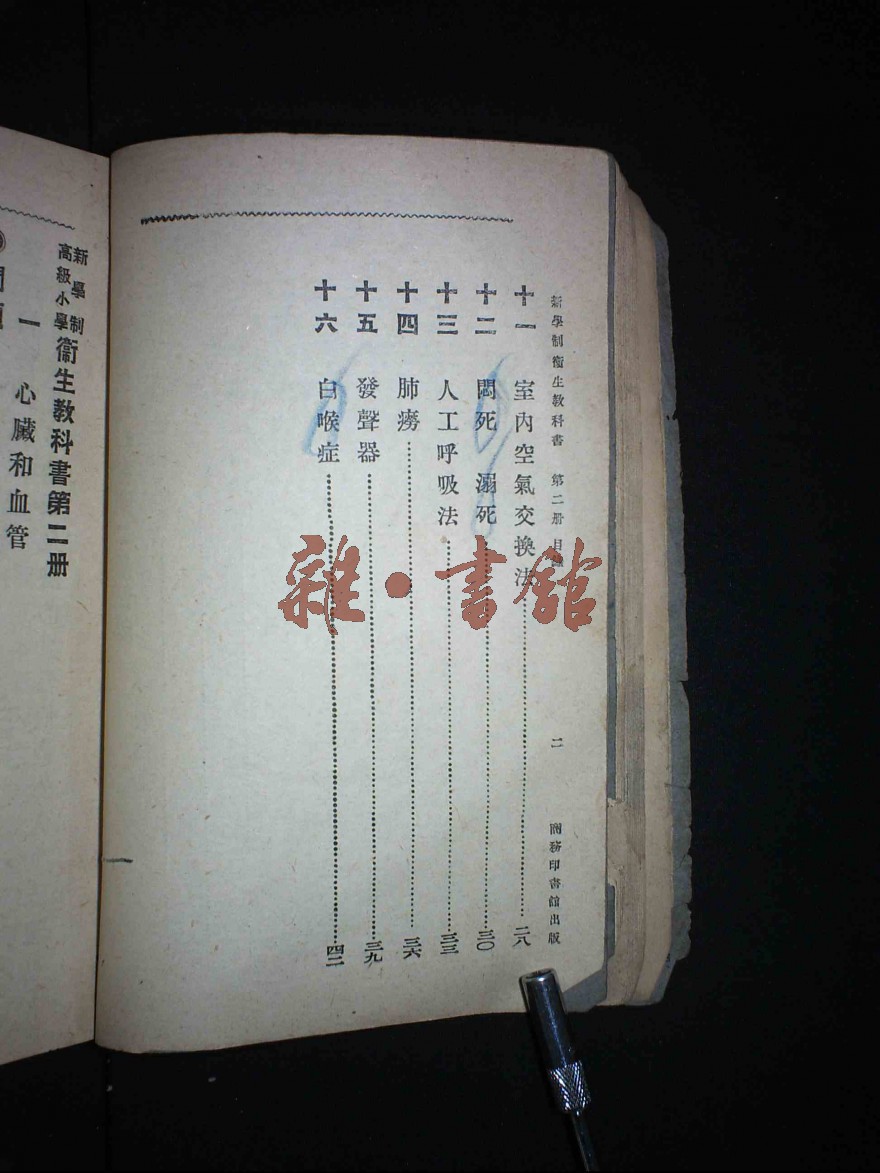 新學制衞生教科書 第二册 目錄 二 商務印書館出版
十一 室內空氣交換法 二八
十二 悶死 溺死 三〇
十三 人工呼吸法 三三
十四 肺癆 三六
十五 發聲器 三九
十六 白喉症 四二
新學制
高級小學
衞生教科書第二册
一 心臟和血管
雜·書館